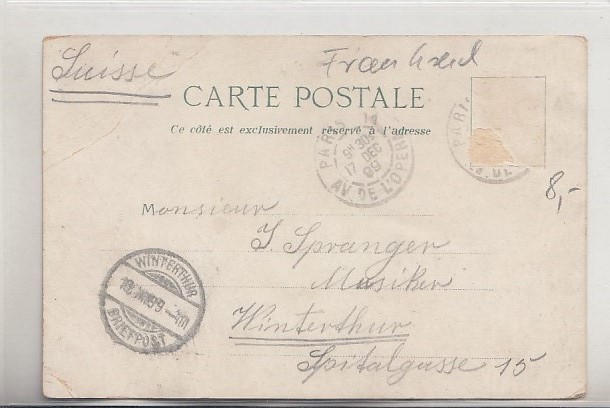 Suisse
CARTE POSTALE
Ce côté est exclusivement réservé à l'adresse
PARIS
17 DEC
AV. DE L'OPERA
PARI
8,-
Monsieur
J. Spranger
Musiker
Winterthur
Spitalgasse 15
WINTERTHUR
BRIEFPOST